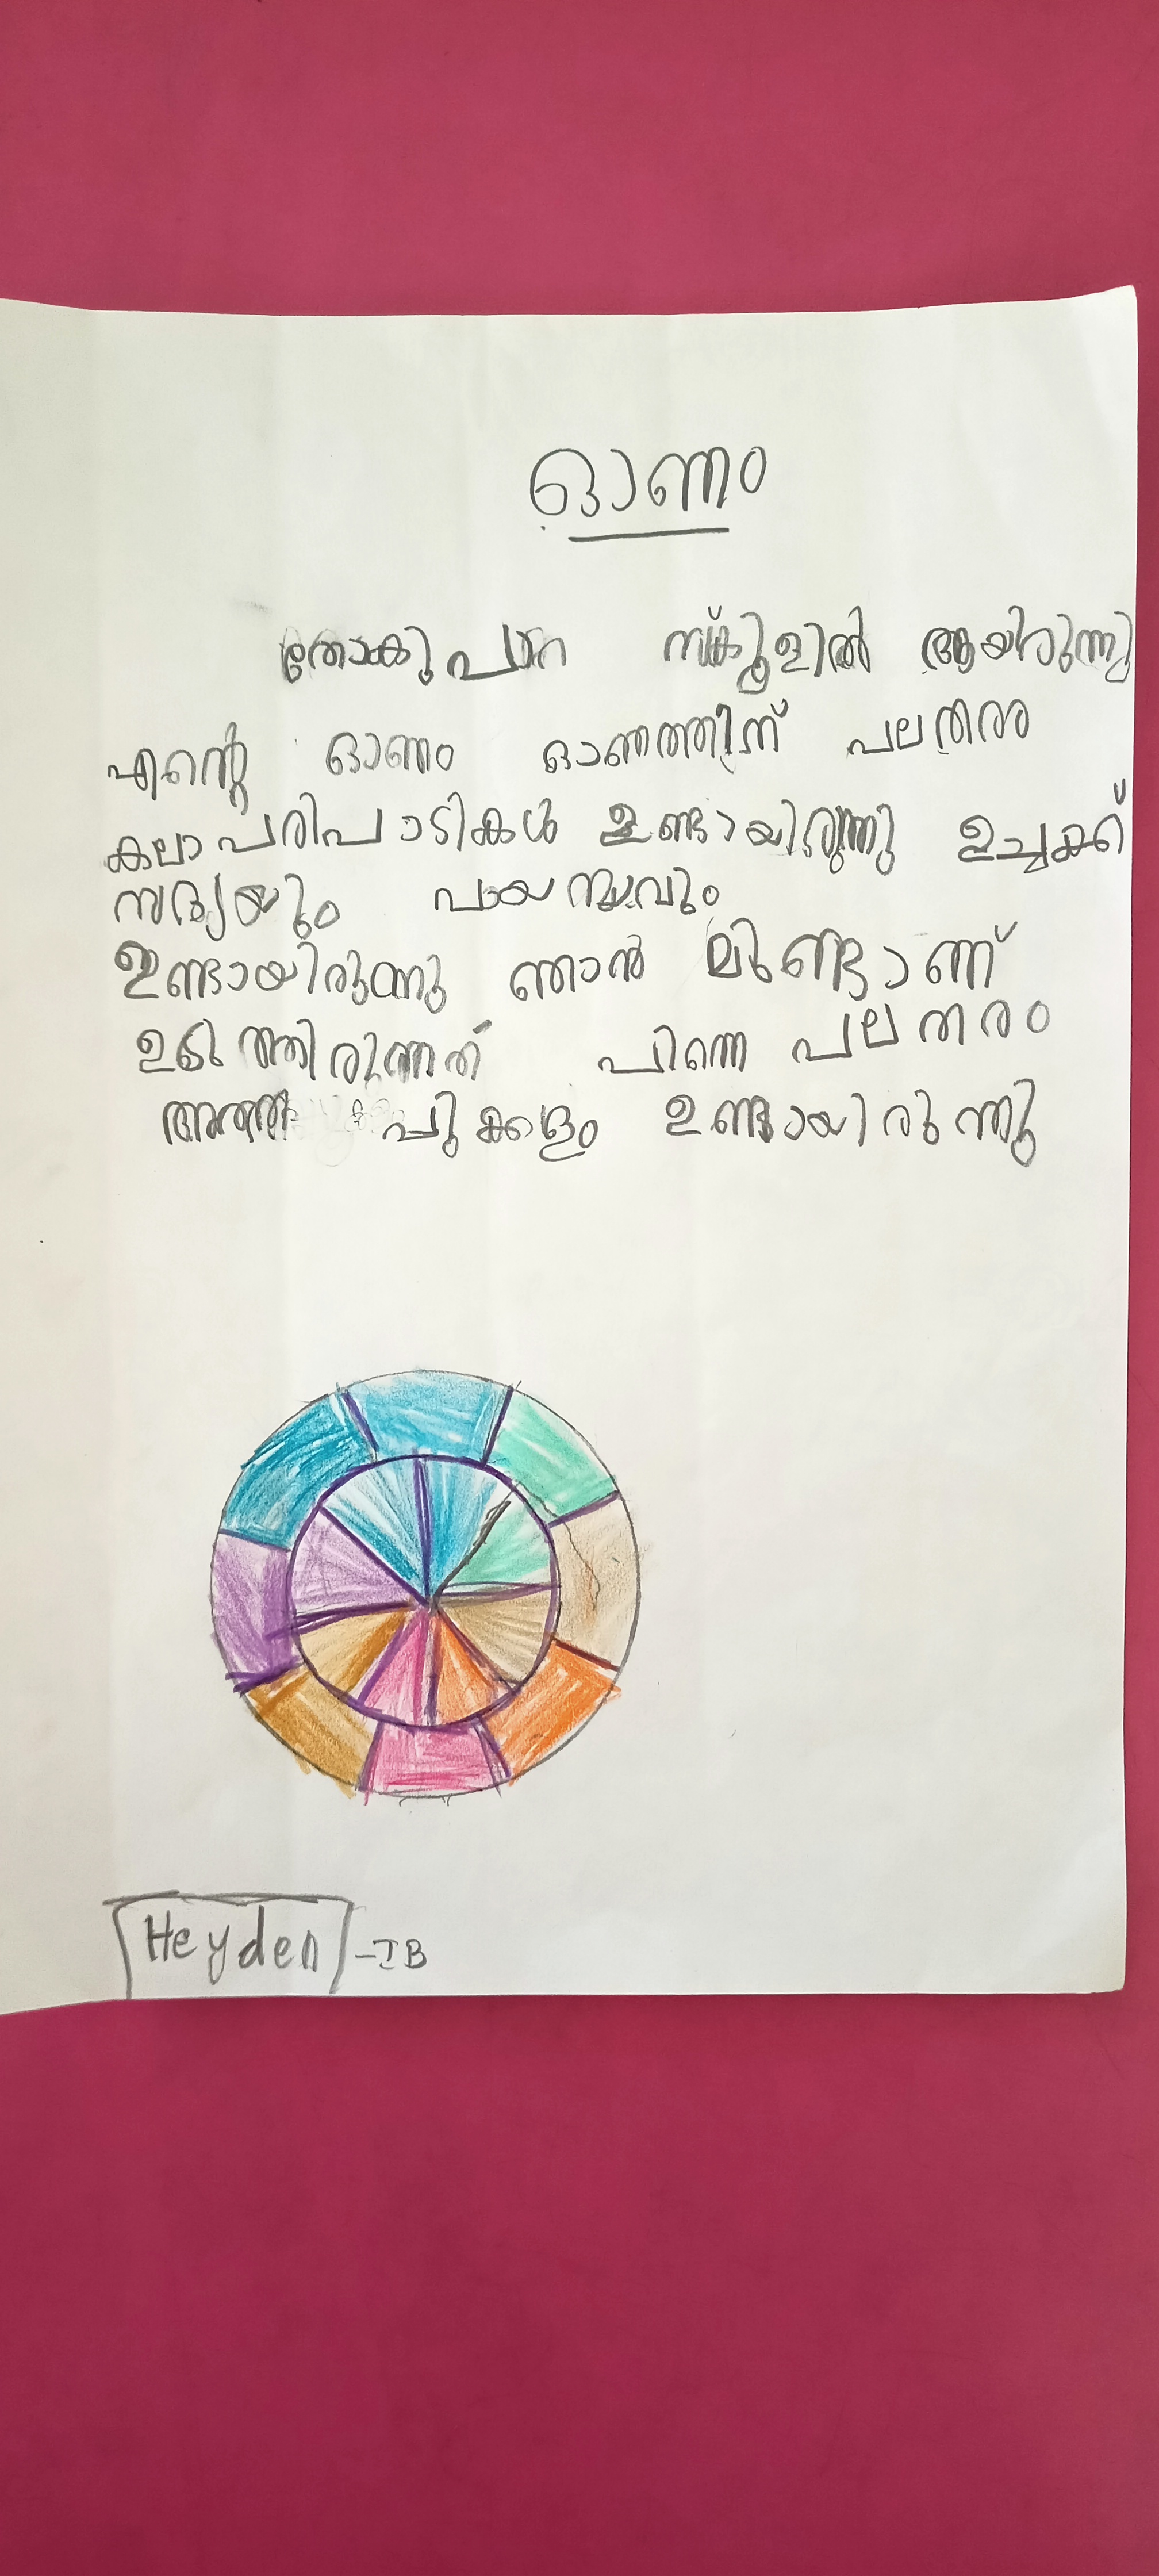 ഓണം
തോക്കുപാറ സ്കൂളിൽ ആയിരുന്നു
എന്റെ ഓണം ഓണത്തിന് പലതരം
കലാപരിപാടികൾ ഉണ്ടായിരുന്നു ഉച്ചക്ക്
സദ്യയും പായസവും
ഇണ്ടായിരുന്നു ഞാൻ മുണ്ടാണ്
ഉടുത്തിരുന്നത് പിന്നെ പലതരം
അത്ത പൂക്കളം ഉണ്ടായിരുന്നു
Heyden - I B